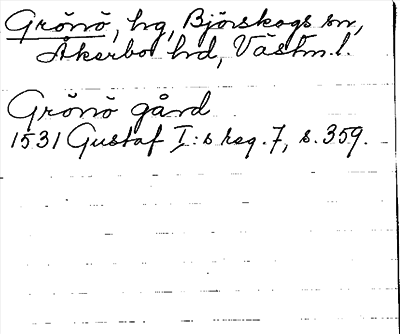 Grönö, hg, Björskogs sn,
Åkerbo hd, Västm.l.
Grönö gård
1531 Gustaf I:s reg. 7, s. 359.